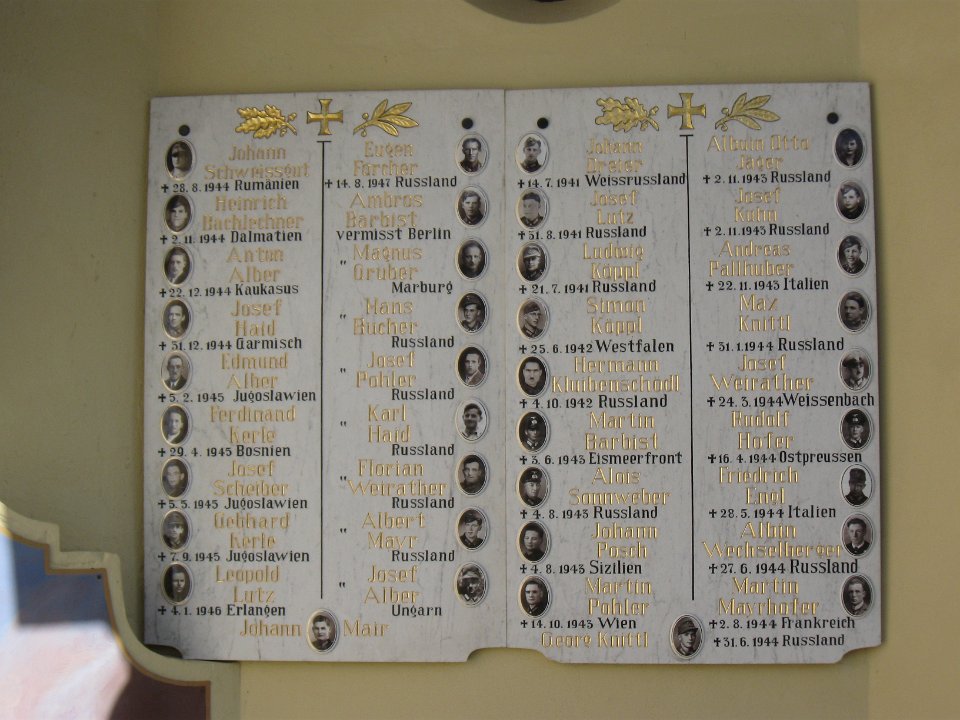 Johann
Schweissgut
+ 28. 8. 1944 Rumänien
Heinrich
Bachlechner
+ 2. 11. 1944 Dalmatien
Anton
Alber
+ 22. 12. 1944 Kaukasus
Josef
Haid
+ 31. 12. 1944 Garmisch
Edmund
Alber
+ 5. 2. 1945 Jugoslawien
Ferdinand
Kerle
+ 29. 4. 1945 Bosnien
Josef
Scheiber
+ 5. 5. 1945 Jugoslawien
Gebhard
Kerle
+ 7. 9. 1945 Jugoslawien
Leopold
Lutz
+ 4. 1. 1946 Erlangen
Johann Mair
Eugen
Forcher
+ 14. 8. 1947 Russland
Ambros
Barbist
vermisst Berlin
Magnus
" Gruber
Marburg
Hans
" Bucher
Russland
Josef
" Pohler
Russland
Karl
" Haid
Russland
Florian
" Weirather
Russland
Albert
" Mayr
Russland
Josef
" Alber
Ungarn
Johann
Dreier
+ 14. 7. 1941 Weissrussland
Josef
Lutz
+ 31. 8. 1941 Russland
Ludwig
Köpfl
+ 21. 7. 1941 Russland
Simon
Köppl
+ 25. 6. 1942 Westfalen
Hermann
Kluibenschödl
+ 4. 10. 1942 Russland
Martin
Barbist
+ 3. 6. 1943 Eismeerfront
Alois
Sonnweber
+ 4. 8. 1943 Russland
Johann
Posch
+ 4. 8. 1943 Sizilien
Martin
Pohler
+ 14. 10. 1943 Wien
Georg Knittl
Albuin Otto
Jäger
+ 2. 11. 1943 Russland
Josef
Kuhn
+ 2. 11. 1943 Russland
Andreas
Pallhuber
+ 22. 11. 1943 Italien
Max
Knittl
+ 31. 1. 1944 Russland
Josef
Weirather
+ 24. 3. 1944 Weissenbach
Rudolf
Hofer
+ 16. 4. 1944 Ostpreussen
Friedrich
Engl
+ 28. 5. 1944 Italien
Albin
Wechselberger
+ 27. 6. 1944 Russland
Martin
Mayrhofer
+ 2. 8. 1944 Frankreich
+ 31. 6. 1944 Russland